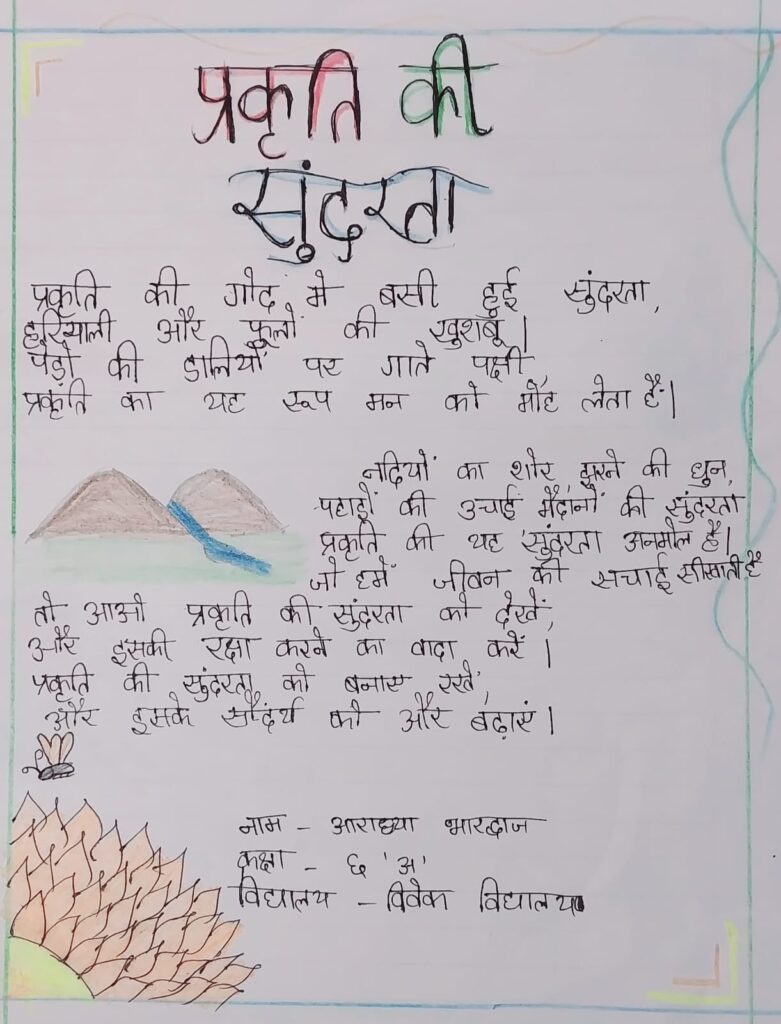 प्रकृति की
सुंदरता
प्रकृति की गोद मे बसी हुई सुंदरता,
हरियाली और फूलों की खुशबू।
पेड़ो की डालियों पर गाते पक्षी
प्रकृति का यह रूप मन को मोह लेता है।
नदियों का शोर, झरने की धुन,
पहाड़ों की उचाई मैदानों की सुंदरता
प्रकृति की यह सुंदरता अनमोल है।
जो हमें जीवन की सचाई सीखाती है
तो आओ प्रकृति की सुंदरता को देखें,
और इसकी रक्षा करने का वादा करें।
प्रकृति की सुंदरता को बनाए रखें,
और इसके सौंदर्य को और बढ़ाएं।
नाम - आराध्या भारद्वाज
कक्षा - ६ 'अ'
विद्यालय - विवेक विद्यालय